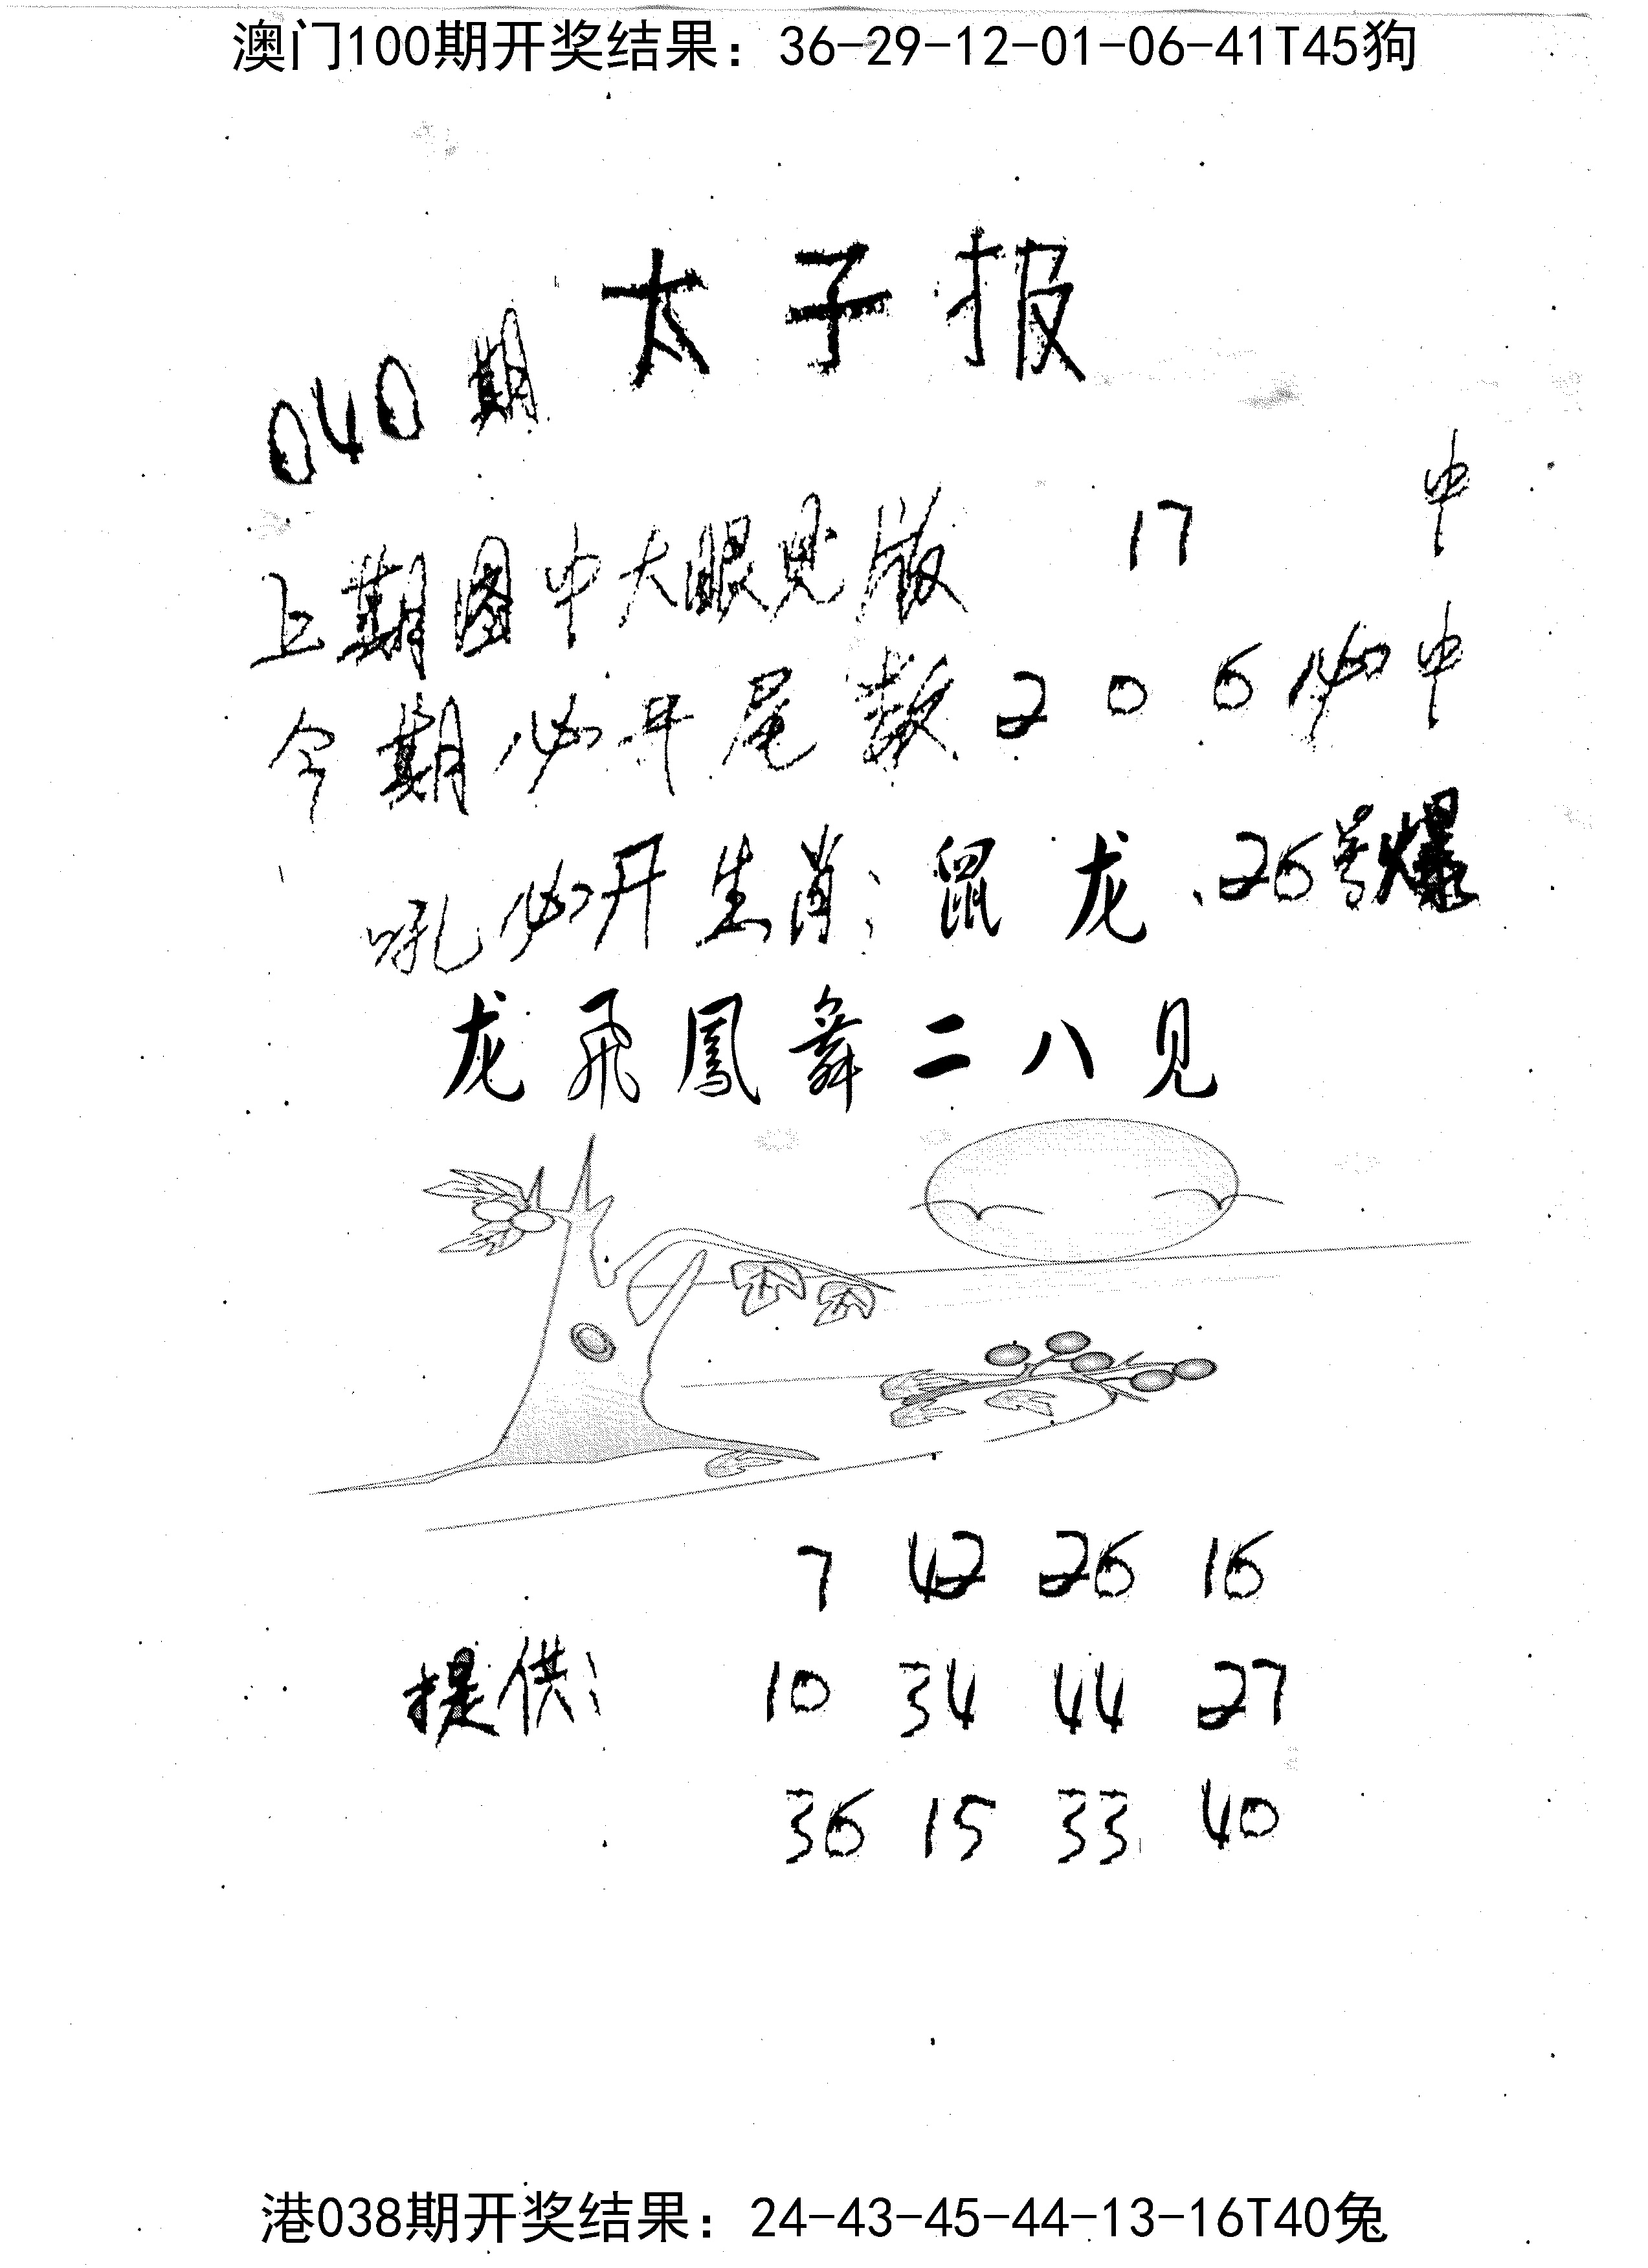 澳门100期开奖结果：36-29-12-01-06-41T45狗
太子报
040期
上期图中大眼见版 17 中
今期必开尾数 2 0 6 必中
吼必开生肖：鼠 龙、26号爆
龙飛鳳舞二八见
7 42 26 16
提供： 10 34 44 27
36 15 33 40
港038期开奖结果：24-43-45-44-13-16T40兔